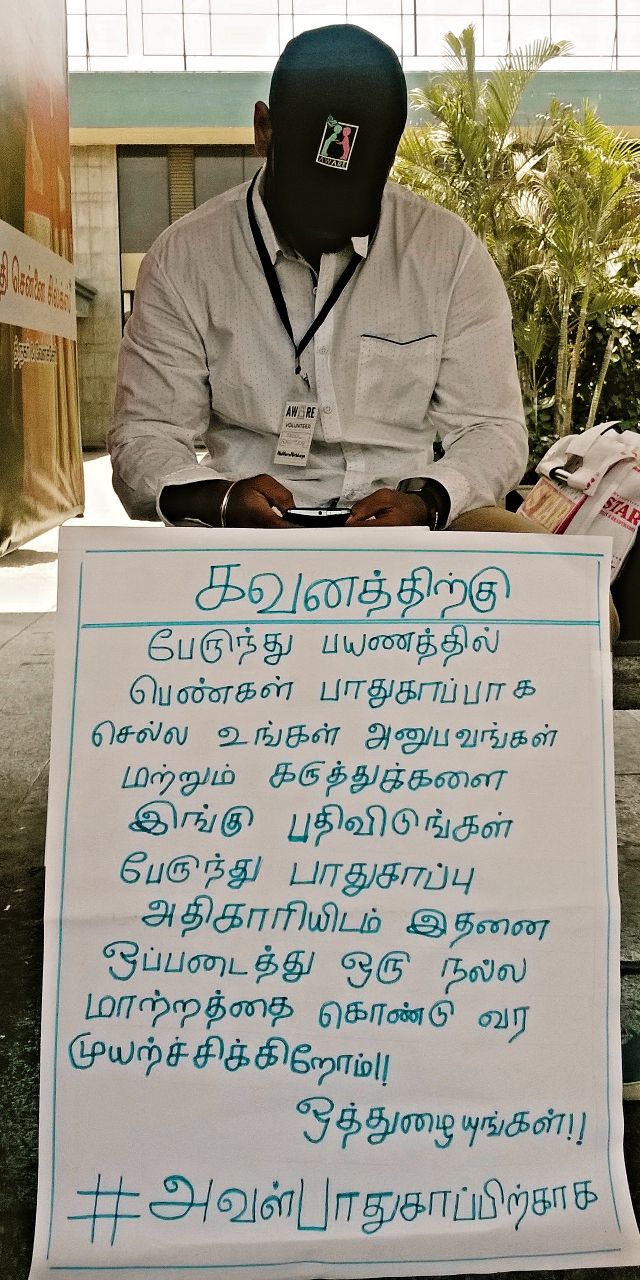 AWARE
தி சென்னை சில்க்ஸ்
AWARE
VOLUNTEER
STAR
கவனத்திற்கு
பேருந்து பயணத்தில்
பெண்கள் பாதுகாப்பாக
செல்ல உங்கள் அனுபவங்கள்
மற்றும் கருத்துக்களை
இங்கு பதிவிடுங்கள்
பேருந்து பாதுகாப்பு
அதிகாரியிடம் இதனை
ஒப்படைத்து ஒரு நல்ல
மாற்றத்தை கொண்டு வர
முயற்ச்சிக்கிறோம்!!
ஒத்துழையுங்கள்!!
#அவள்பாதுகாப்பிற்காக